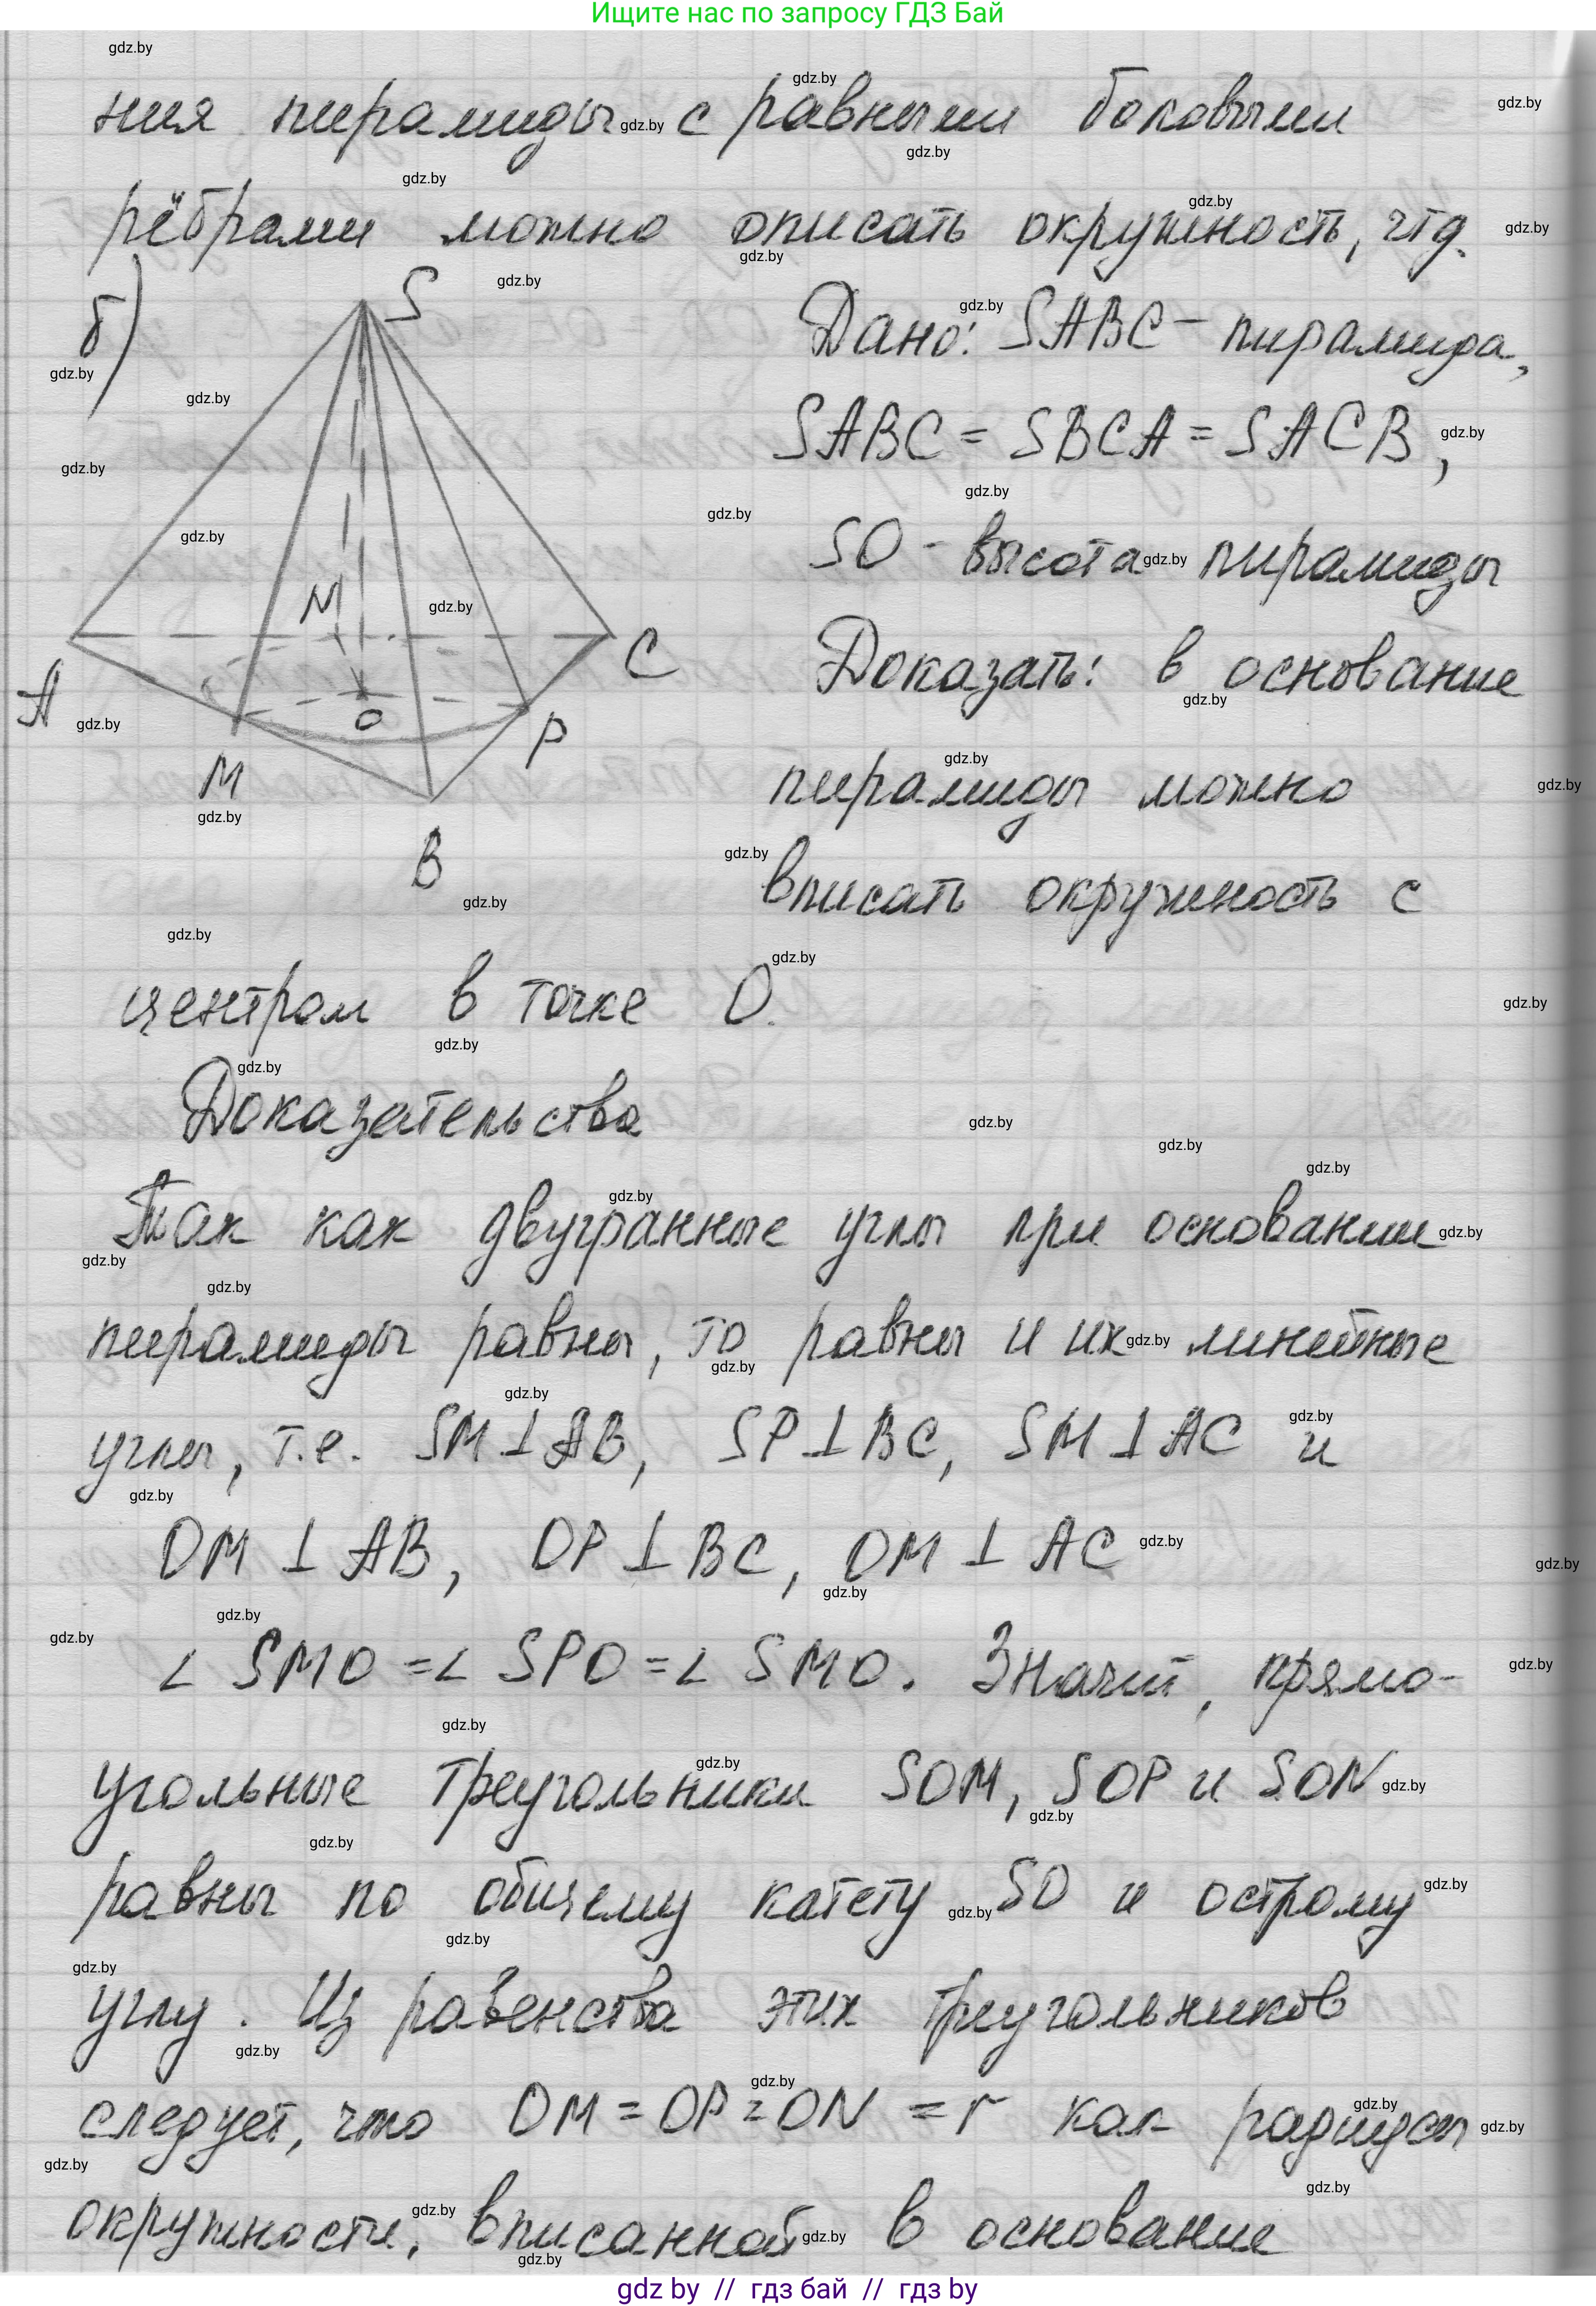 Ищите нас по запросу ГДЗ Бай
ния пирамиды с равными боковыми
рёбрами можно описать окружность, чтд.
б)
S
Дано: SABC - пирамида,
SABC = SBCA = SACB,
SO - высота пирамиды
N
Доказать: в основание
A
C
O
P
M
пирамиды можно
B
вписать окружность с
центром в точке O.
Доказательство
Так как двугранные углы при основании
пирамиды равны, то равны и их линейные
углы, т.е. SM⊥AB, SP⊥BC, SM⊥AC и
OM ⊥ AB, OP⊥BC, OM ⊥ AC
∠ SMO =∠ SPO =∠ SMO. Значит, прямо-
угольные треугольники SOM, SOP и SON
равны по общему катету SO и острому
углу. Из равенства этих треугольников
следует, что OM = OP = ON = r как радиусы
окружности, вписанной в основание
gdz by // гдз бай // гдз by